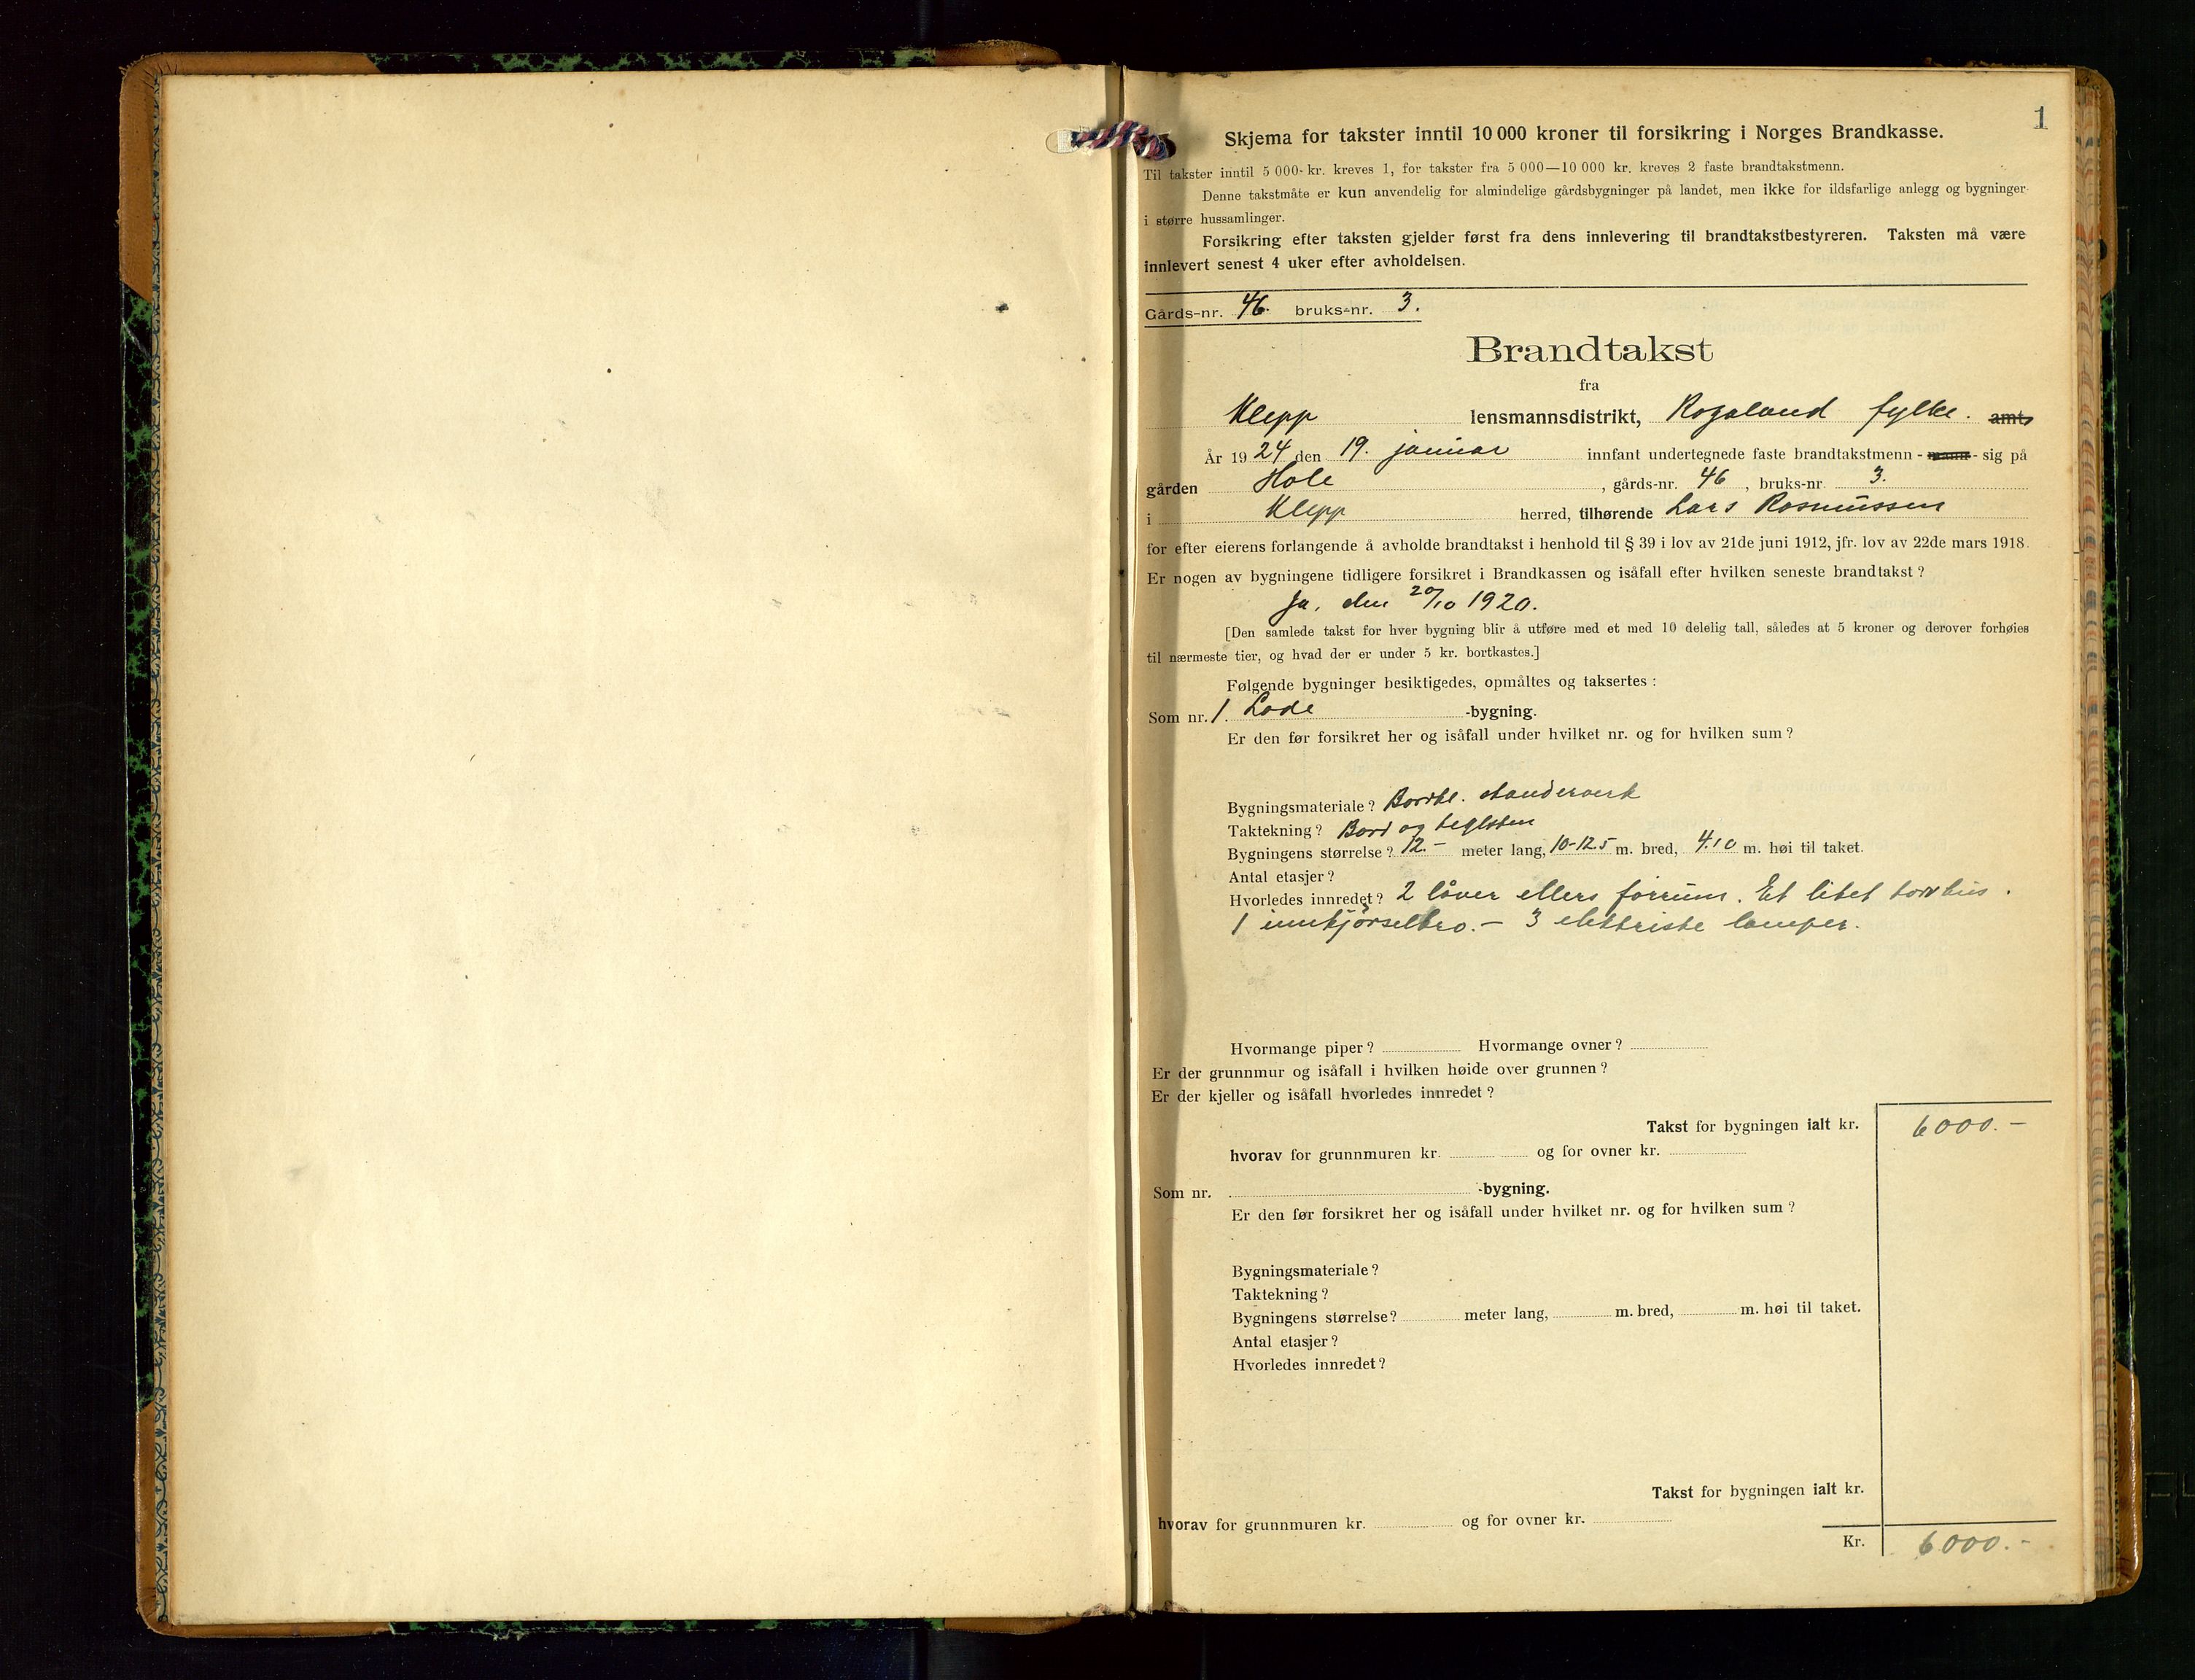 1
Skjema for takster inntil 10 000 kroner til forsikring i Norges Brandkasse.
Til takster inntil 5 000 kr. kreves 1, for takster fra 5 000—10 000 kr. kreves 2 faste brandtakstmenn.
Denne takstmåte er kun anvendelig for almindelige gårdsbygninger på landet, men ikke for ildsfarlige anlegg og bygninger
i større hussamlinger.
Forsikring efter taksten gjelder først fra dens innlevering til brandtakstbestyreren. Taksten må være
innlevert senest 4 uker efter avholdelsen.
Gårds-nr. 46. bruks-nr. 3.
Brandtakst
fra
Klepp lensmannsdistrikt, Rogaland fylke. amt,
År 1924 den 19. januar innfant undertegnede faste brandtakstmenn - mann - sig på
gården Hole, gårds-nr. 46, bruks-nr. 3.
i Klepp herred, tilhørende Lars Rasmussen
for efter eierens forlangende å avholde brandtakst i henhold til § 39 i lov av 21de juni 1912, jfr. lov av 22de mars 1918.
Er nogen av bygningene tidligere forsikret i Brandkassen og isåfall efter hvilken seneste brandtakst?
Ja, den 20/10 1920.
[Den samlede takst for hver bygning blir å utføre med et med 10 delelig tall, således at 5 kroner og derover forhøies
til nærmeste tier, og hvad der er under 5 kr. bortkastes.]
Følgende bygninger besiktigedes, opmåltes og taksertes:
Som nr. 1. Lode -bygning.
Er den før forsikret her og isåfall under hvilket nr. og for hvilken sum?
Bygningsmateriale? Bordkl. standerverk
Taktekning? Bord og teglsten
Bygningens størrelse? 12.- meter lang, 10-12.5 m. bred, 4.10 m. høi til taket.
Antal etasjer?
Hvorledes innredet? 2 låver ellers forrum. Et litet torvhus.
1 innkjørselbro. - 3 elektriske lamper.
Hvormange piper? Hvormange ovner?
Er der grunnmur og isåfall i hvilken høide over grunnen?
Er der kjeller og isåfall hvorledes innredet?
Takst for bygningen ialt kr. 6000.-
hvorav for grunnmuren kr. og for ovner kr.
Som nr. -bygning.
Er den før forsikret her og isåfall under hvilket nr. og for hvilken sum?
Bygningsmateriale?
Taktekning?
Bygningens størrelse? meter lang, m. bred, m. høi til taket.
Antal etasjer?
Hvorledes innredet?
Takst for bygningen ialt kr.
hvorav for grunnmuren kr. og for ovner kr.
Kr. 6000.-